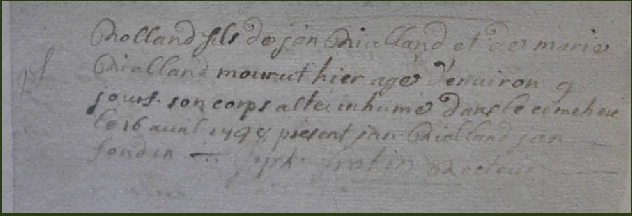 Rolland fils de jan Rialland et de marie
Rialland mourut hier agé d'enuiron 9
jours. son corps a été inhumé dans le cimetiere
le 16 auril 1748 présent jan Rialland jan
fondin Recteur